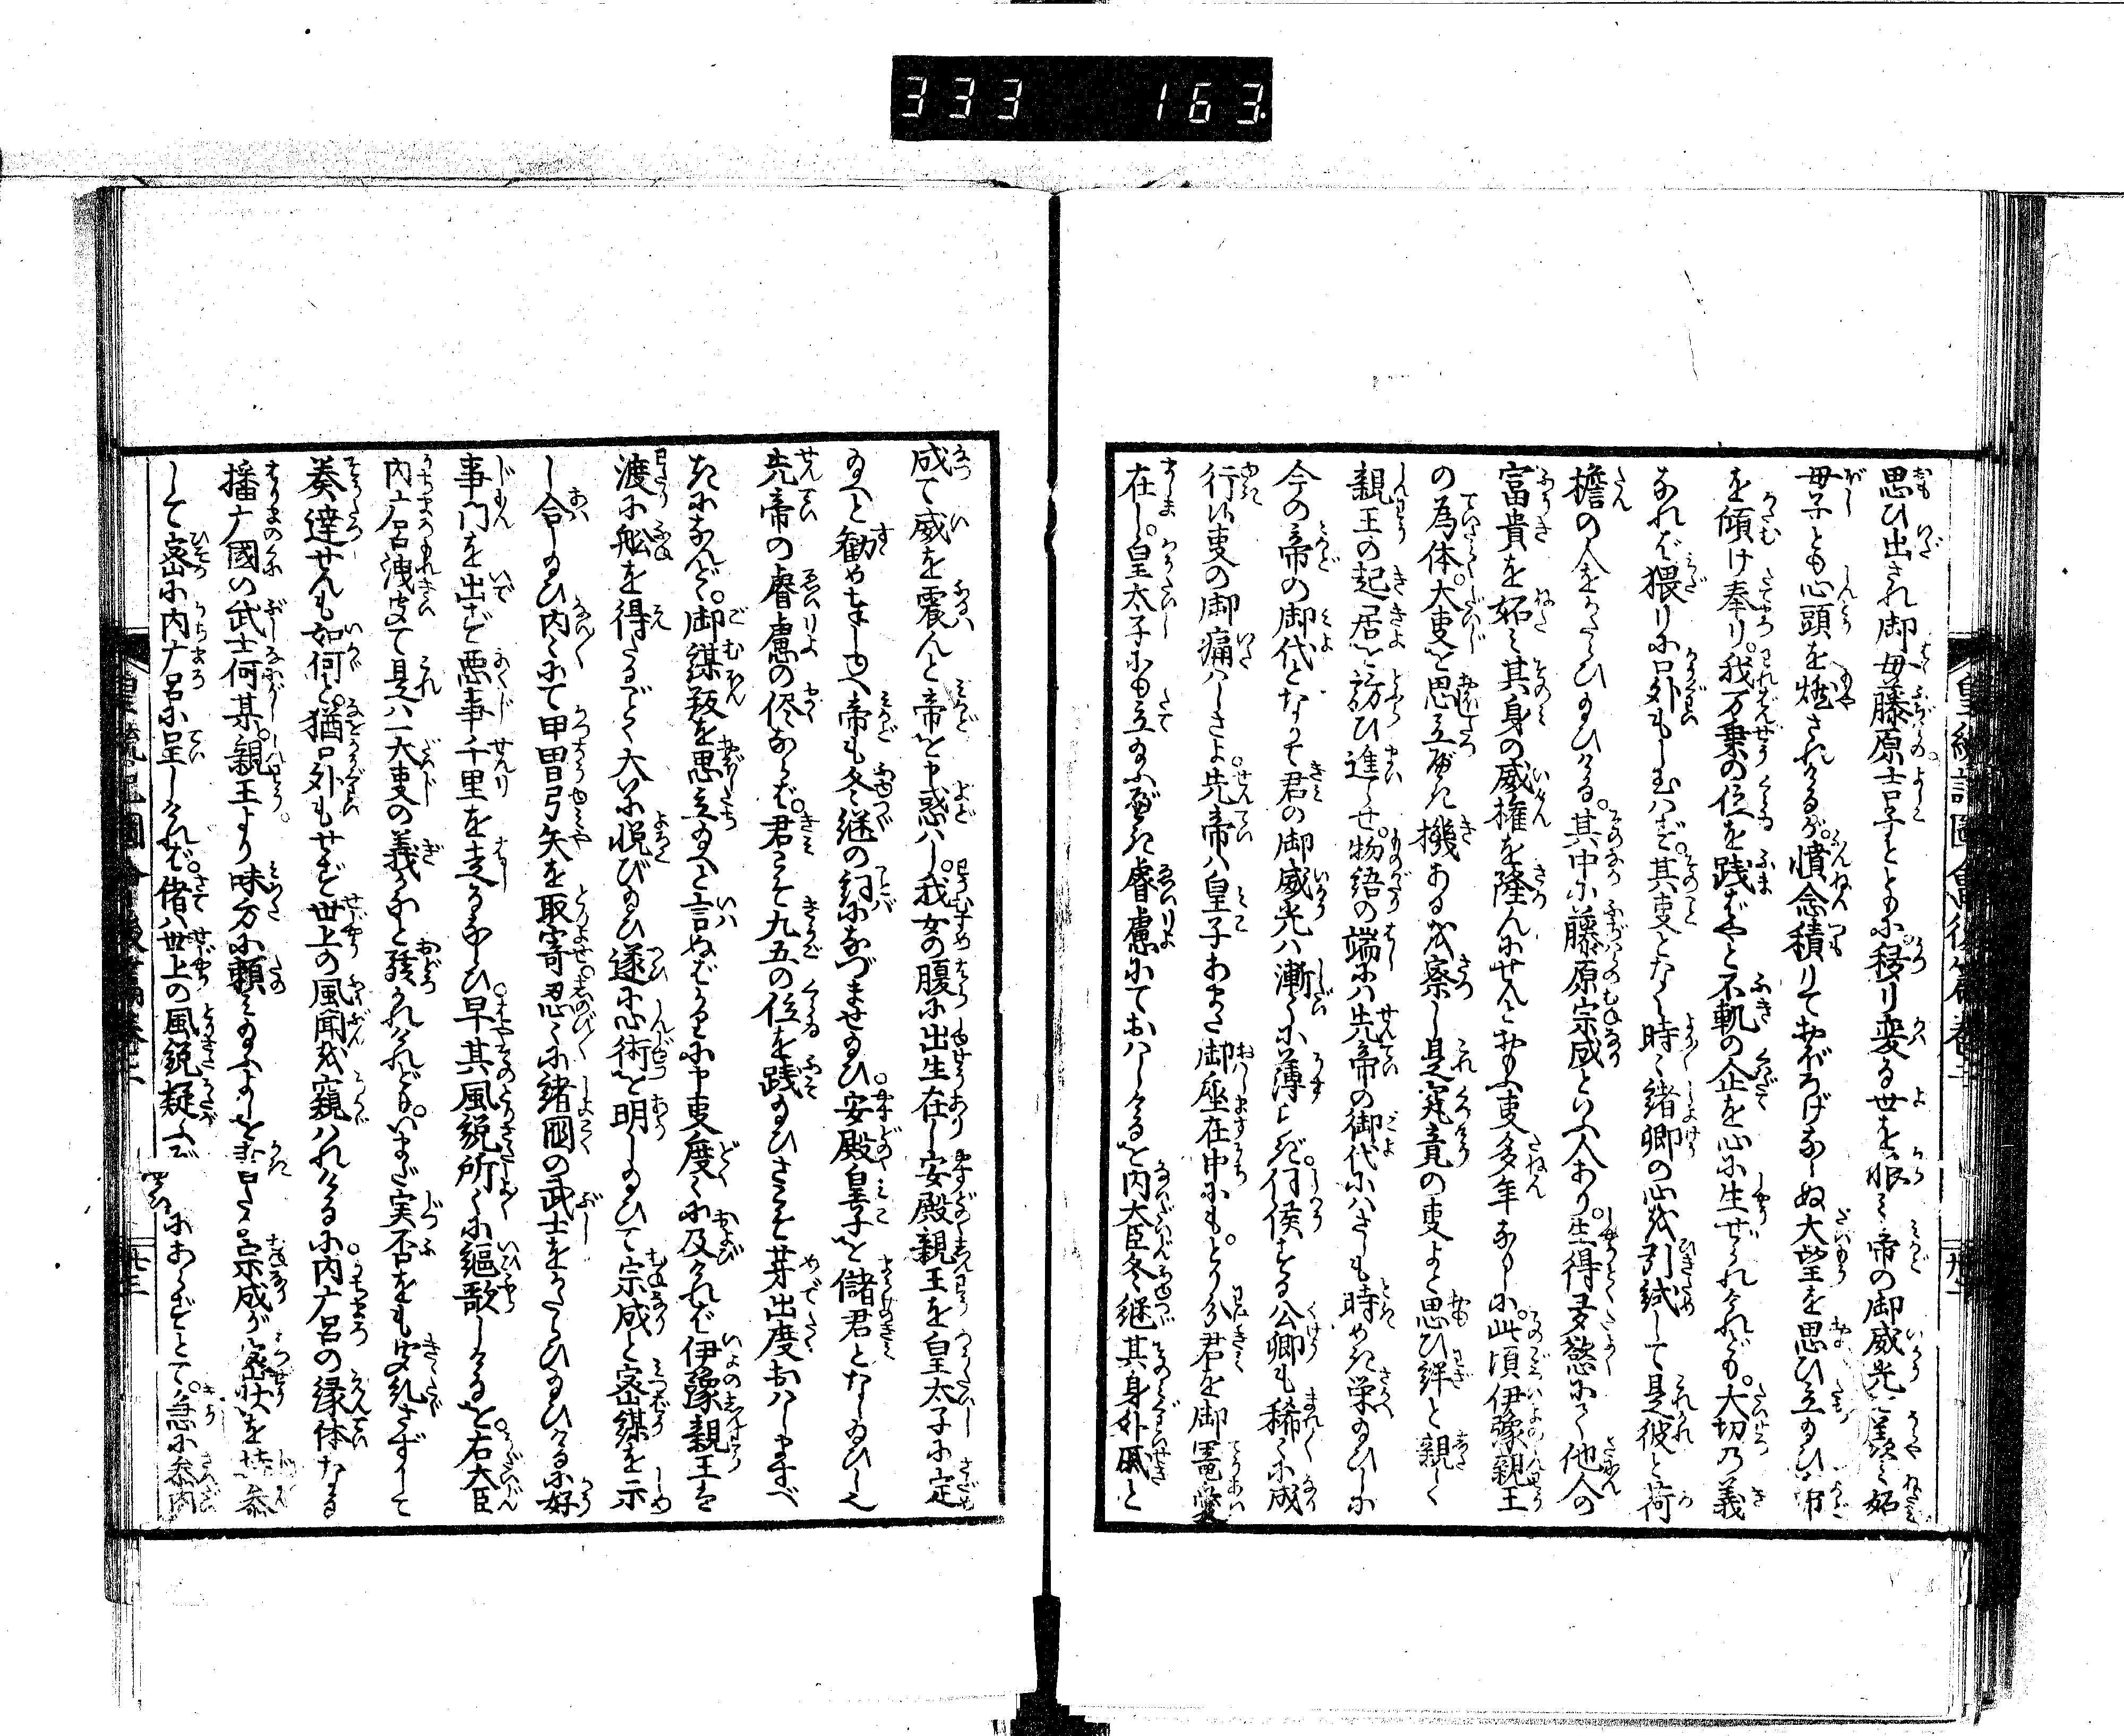 333 163.
思ひ出され御母藤原吉子とともに移り変る世を恨ミ帝の御威光を羨ミ妬
母子とも心頭を燃されけるが。憤念積りておぼろげならぬ大望を思ひ立給ひ帝
を傾け奉り。我万乗の位を践ばやと不軌の企を心に生ぜられけれども。大切乃義
なれバ猥りに口外もし玉ハず。其事となく時〻緒卿の心を引試して是彼と荷
擔の人をかたらひ給ひける。其中に藤原宗成といふ人あり。生得多慾にて他人の
富貴を妬ミ其身の威権を隆んにせんとおもふ事多年なりしに。此頃伊豫親王
の為体。大事を思立べき機あるを察し是究竟の事よと思ひ絆と親しく
親王の起居を訪ひ進らせ。物語の端にハ先帝の御代にハさしも時めき栄給ひしに
今の帝の御代となりて君の御威光ハ漸〻に薄らぎ。伺候する公卿も稀〻に成
行候事の御痛ハしさよ。先帝ハ皇子あまた御座在中にも。とり分君を御寵愛
在し。皇太子にも立給ふべき睿慮にておハしけるを内大臣冬継其身外戚と
成て威を震んと帝を申惑ハし。我女の腹に出生在し安殿親王を皇太子に定
給へと勧めまゐらしゆへ帝も冬継の詞になづませ給ひ。安殿皇子を儲君となし給ひしかど
先帝の睿慮の侭ならバ。君こそ九五の位を践給ひさこそ芽出度おハしますべ
きになんど。御謀叛を思立給へと言ぬばかりに申事度〻に及けれバ伊豫親王ハ
渡に舩を得たるごとく大に悦び給ひ遂に心術を明し給ひて宗成と密謀を示
し合し給ひ内〻にて甲冑弓矢を取寄。忍〻に緒國の武士をかたらひ給ひけるに好
事門を出ず悪事千里を走るならひ。早其風説所〻に謳歌しけるを。右大臣
内麻呂洩聞て是ハ一大事の義かなと駭かれけれども。いまだ実否をも聞糺さずして
奏達せんも如何と。猶口外もせず世上の風聞を窺ハれけるに。内麻呂の縁体なる
播麻國の武士何某。親王より味方に頼ミ給ふよしを書たる宗成が密状を持参
して密に内麻呂に呈しけれバ。偖ハ世上の風説疑ふべきにあらずとて。急に参内